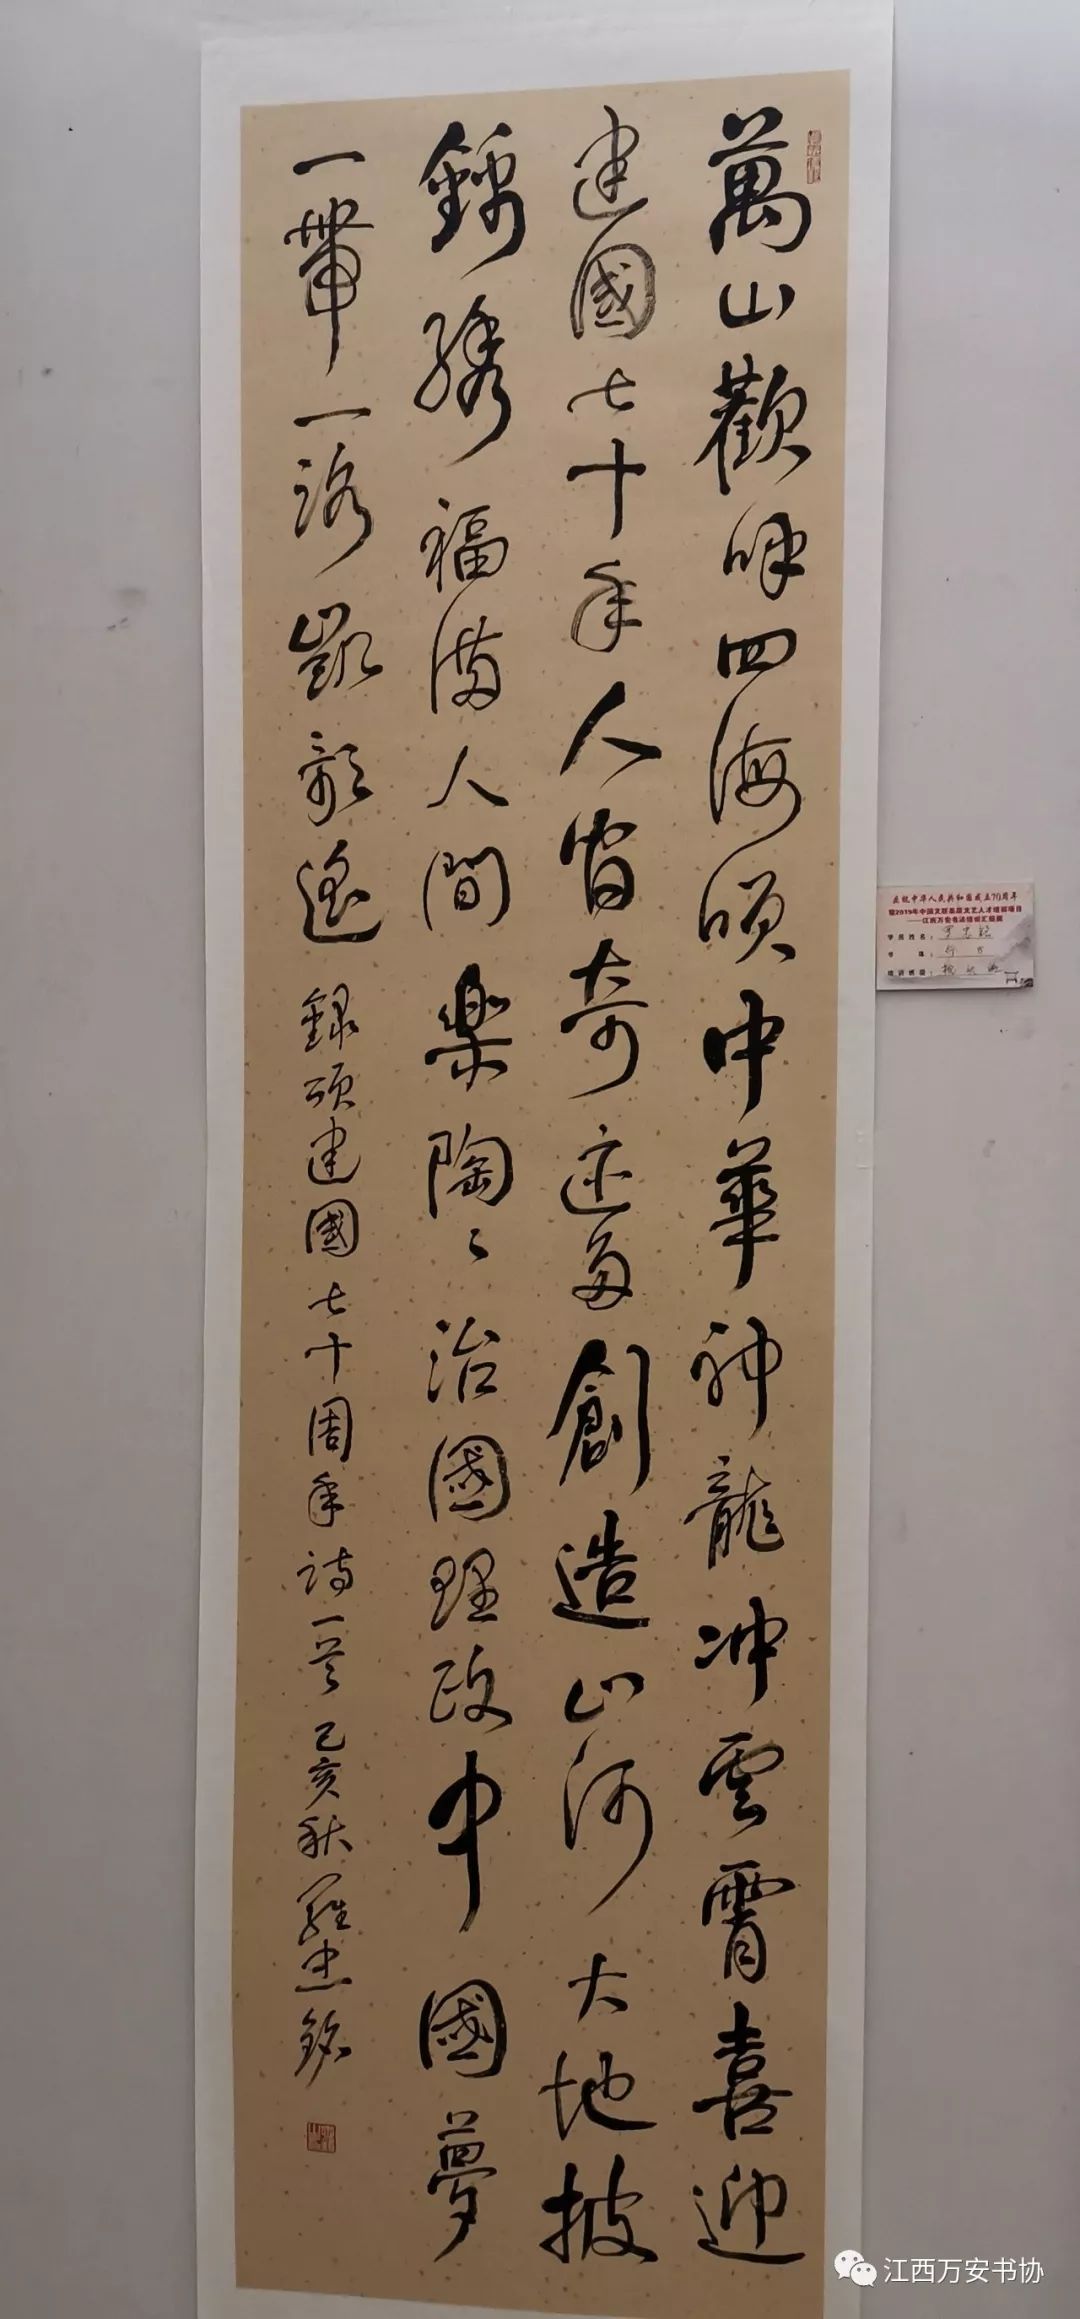 萬山歡呼四海頌中華神龍冲雲霄喜迎
建國七十年人皆奇迹多創造山河大地披
錦綉福滿人間樂陶々治國理政中國夢
一帶一路凱歌遙
錄頌建國七十周年詩一首己亥秋羅忠銘
庆祝中华人民共和国成立70周年
暨2019年中国文联基层文艺人才培训项目
——江西万安书法培训汇报展
学员姓名：罗忠铭
书体：行书
培训班级：
江西万安书协